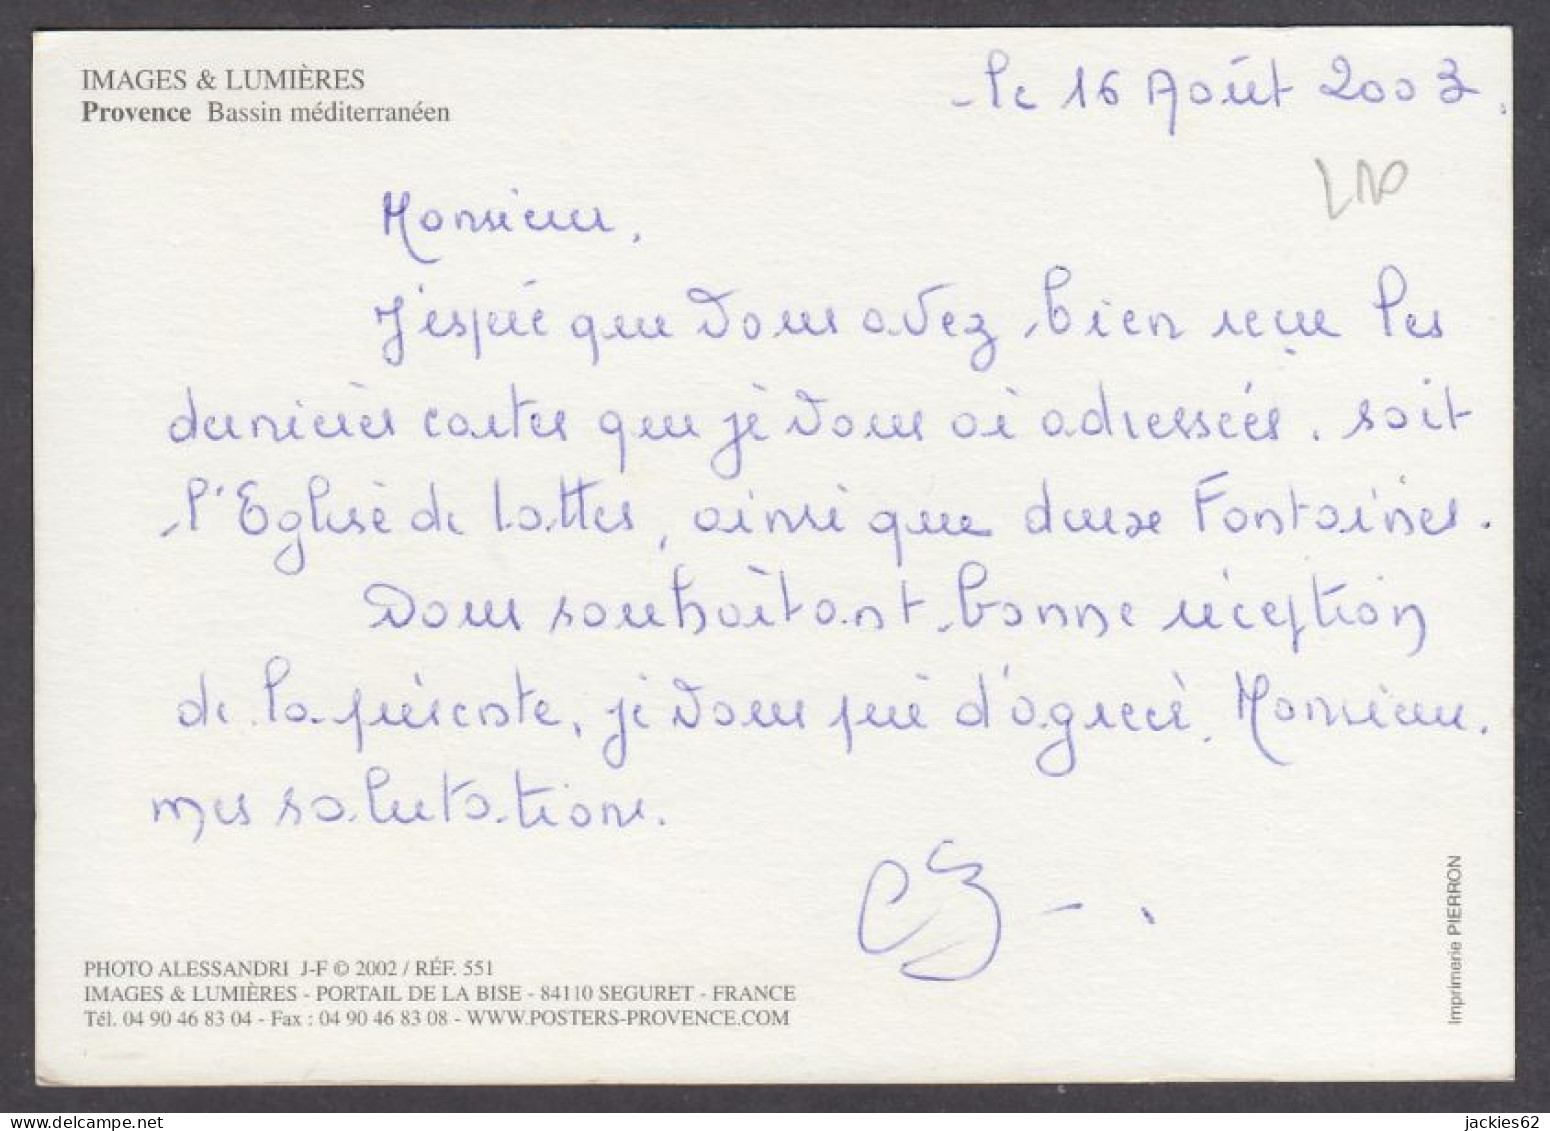 IMAGES & LUMIÈRES
Provence Bassin méditerranéen
le 16 Août 2003.
Monsieur,
J'espère que vous avez bien reçu les
dernières cartes que je vous ai adressées. soit
l'Eglise de Lattes, ainsi que deux Fontaines.
Vous souhaitant bonne réception
de la présente, je vous prie d'agréer, Monsieur.
mes salutations.
PHOTO ALESSANDRI J-F © 2002 / RÉF. 551
IMAGES & LUMIÈRES - PORTAIL DE LA BISE - 84110 SEGURET - FRANCE
Tél. 04 90 46 83 04 - Fax : 04 90 46 83 08 - WWW.POSTERS-PROVENCE.COM
Imprimerie PIERRON
www.delcampe.net
jackies62